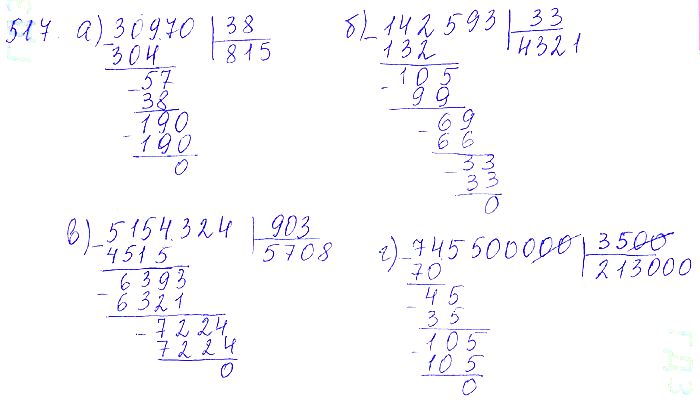 517. а) 30970 | 38
304 | 815
- 57
38
190
- 190
0
б) - 142593 | 33
132 | 4321
- 105
99
- 69
66
- 33
33
0
в) - 5154324 | 903
4515 | 5708
- 6393
6321
- 7224
7224
0
г) - 745500000 | 3500
70 | 213000
- 45
35
- 105
105
0
ГДЗ